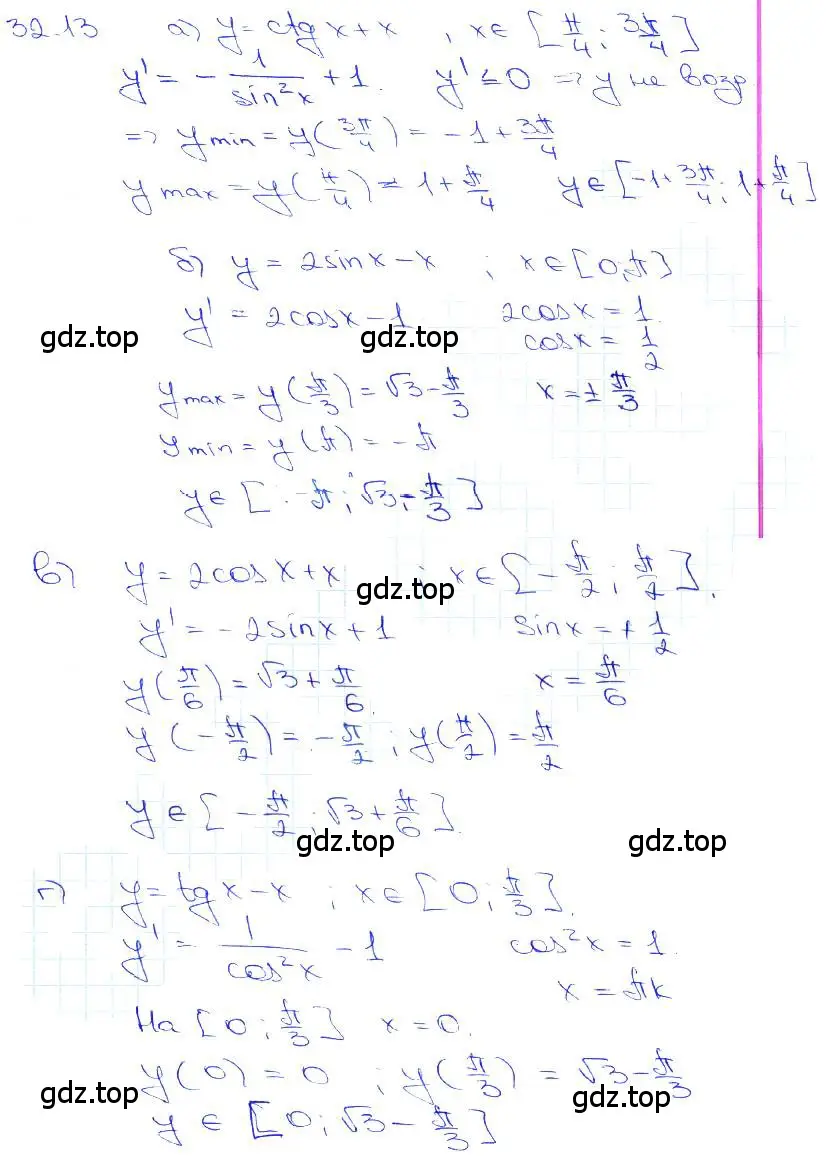 32.13 а) y = ctg x + x , x ∈ [π/4 ; 3π/4]
y' = - 1/sin²x + 1. y' ≤ 0 => y не возр
=> y min = y(3π/4) = -1 + 3π/4
y max = y(π/4) = 1 + π/4 y ∈ [-1 + 3π/4 ; 1 + π/4]
б) y = 2sinx - x ; x ∈ [0; π]
y' = 2cosx - 1 2cosx = 1.
gdz.top gdz.top cosx = 1/2
y max = y(π/3) = √3 - π/3 x = ± π/3
y min = y(π) = -π
y ∈ [-π ; √3 - π/3]
в) y = 2cosx + x ; x ∈ [-π/2 ; π/2].
gdz.top
y' = -2sinx + 1 sinx = + 1/2
y(π/6) = √3 + π/6. x = π/6
y(-π/2) = -π/2 ; y(π/2) = π/2
y ∈ [-π/2 ; √3 + π/6].
gdz.top gdz.top
г) y = tgx - x ; x ∈ [0 ; π/3].
y' = 1/cos²x - 1 cos²x = 1.
x = πk
На [0 ; π/3] x = 0.
y(0) = 0 ; y(π/3) = √3 - π/3
gdz.top gdz.top
y ∈ [0 ; √3 - π/3]